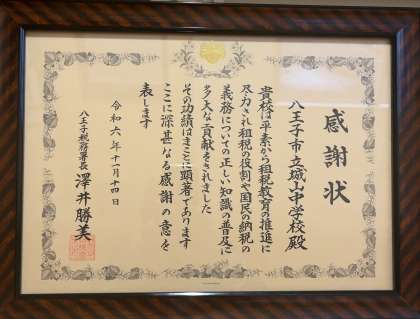 感謝状
八王子市立城山中学校殿
貴校は平素から租税教育の推進に
尽力され租税の役割や国民の納税の
義務についての正しい知識の普及に
多大な貢献をされました
その功績はまことに顕著であります
ここに深甚なる感謝の意を
表します
令和六年十一月十四日
八王子税務署長 澤井勝美